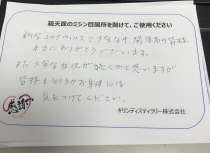 箱天面のミシン目箇所を開けて、ご使用ください
新型コロナウィルスで大変な中 関係者の皆様
本当にありがとうございます。
まだ大変な状況が続くかと思いますが
皆様もどうかお身体には
気をつけてください。
感謝
キリンディスティラリー株式会社